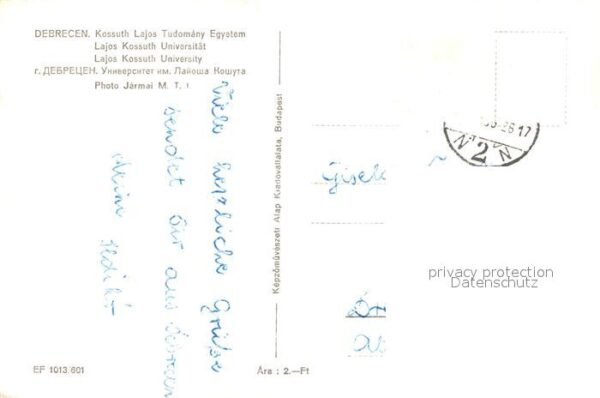 DEBRECEN. Kossuth Lajos Tudomány Egyetem
Lajos Kossuth Universität
Lajos Kossuth University
г. ДЕБРЕЦЕН. Университет им. Лайоша Кошута
Photo Jármai M. T. I
Viele herzliche Grüße
sendet Dir aus Debrecen
Képzőművészeti Alap Kiadóvállalata, Budapest
26 17
N 2 N
Gisel
privacy protection
Datenschutz
EF 1013/601
Ára : 2.—Ft